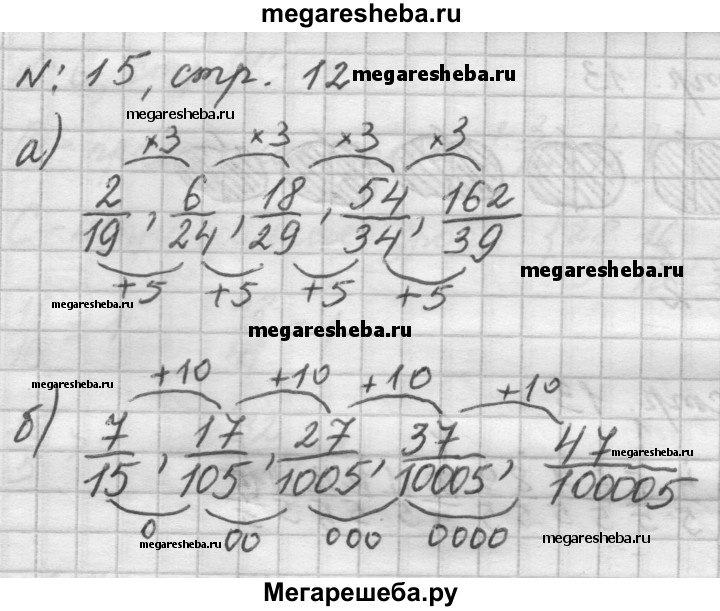 megaresheba.ru
№: 15, стр. 12 megaresheba.ru
megaresheba.ru
а) ×3 ×3 ×3 ×3
2/19, 6/24, 18/29, 54/34, 162/39
megaresheba.ru
+5 +5 +5 +5
megaresheba.ru
megaresheba.ru
megaresheba.ru
+10 +10 +10 +10
б) 7/15, 17/105, 27/1005, 37/10005, 47/100005
megaresheba.ru
0 00 000 0000
megaresheba.ru
megaresheba.ru
Мегарешеба.ру